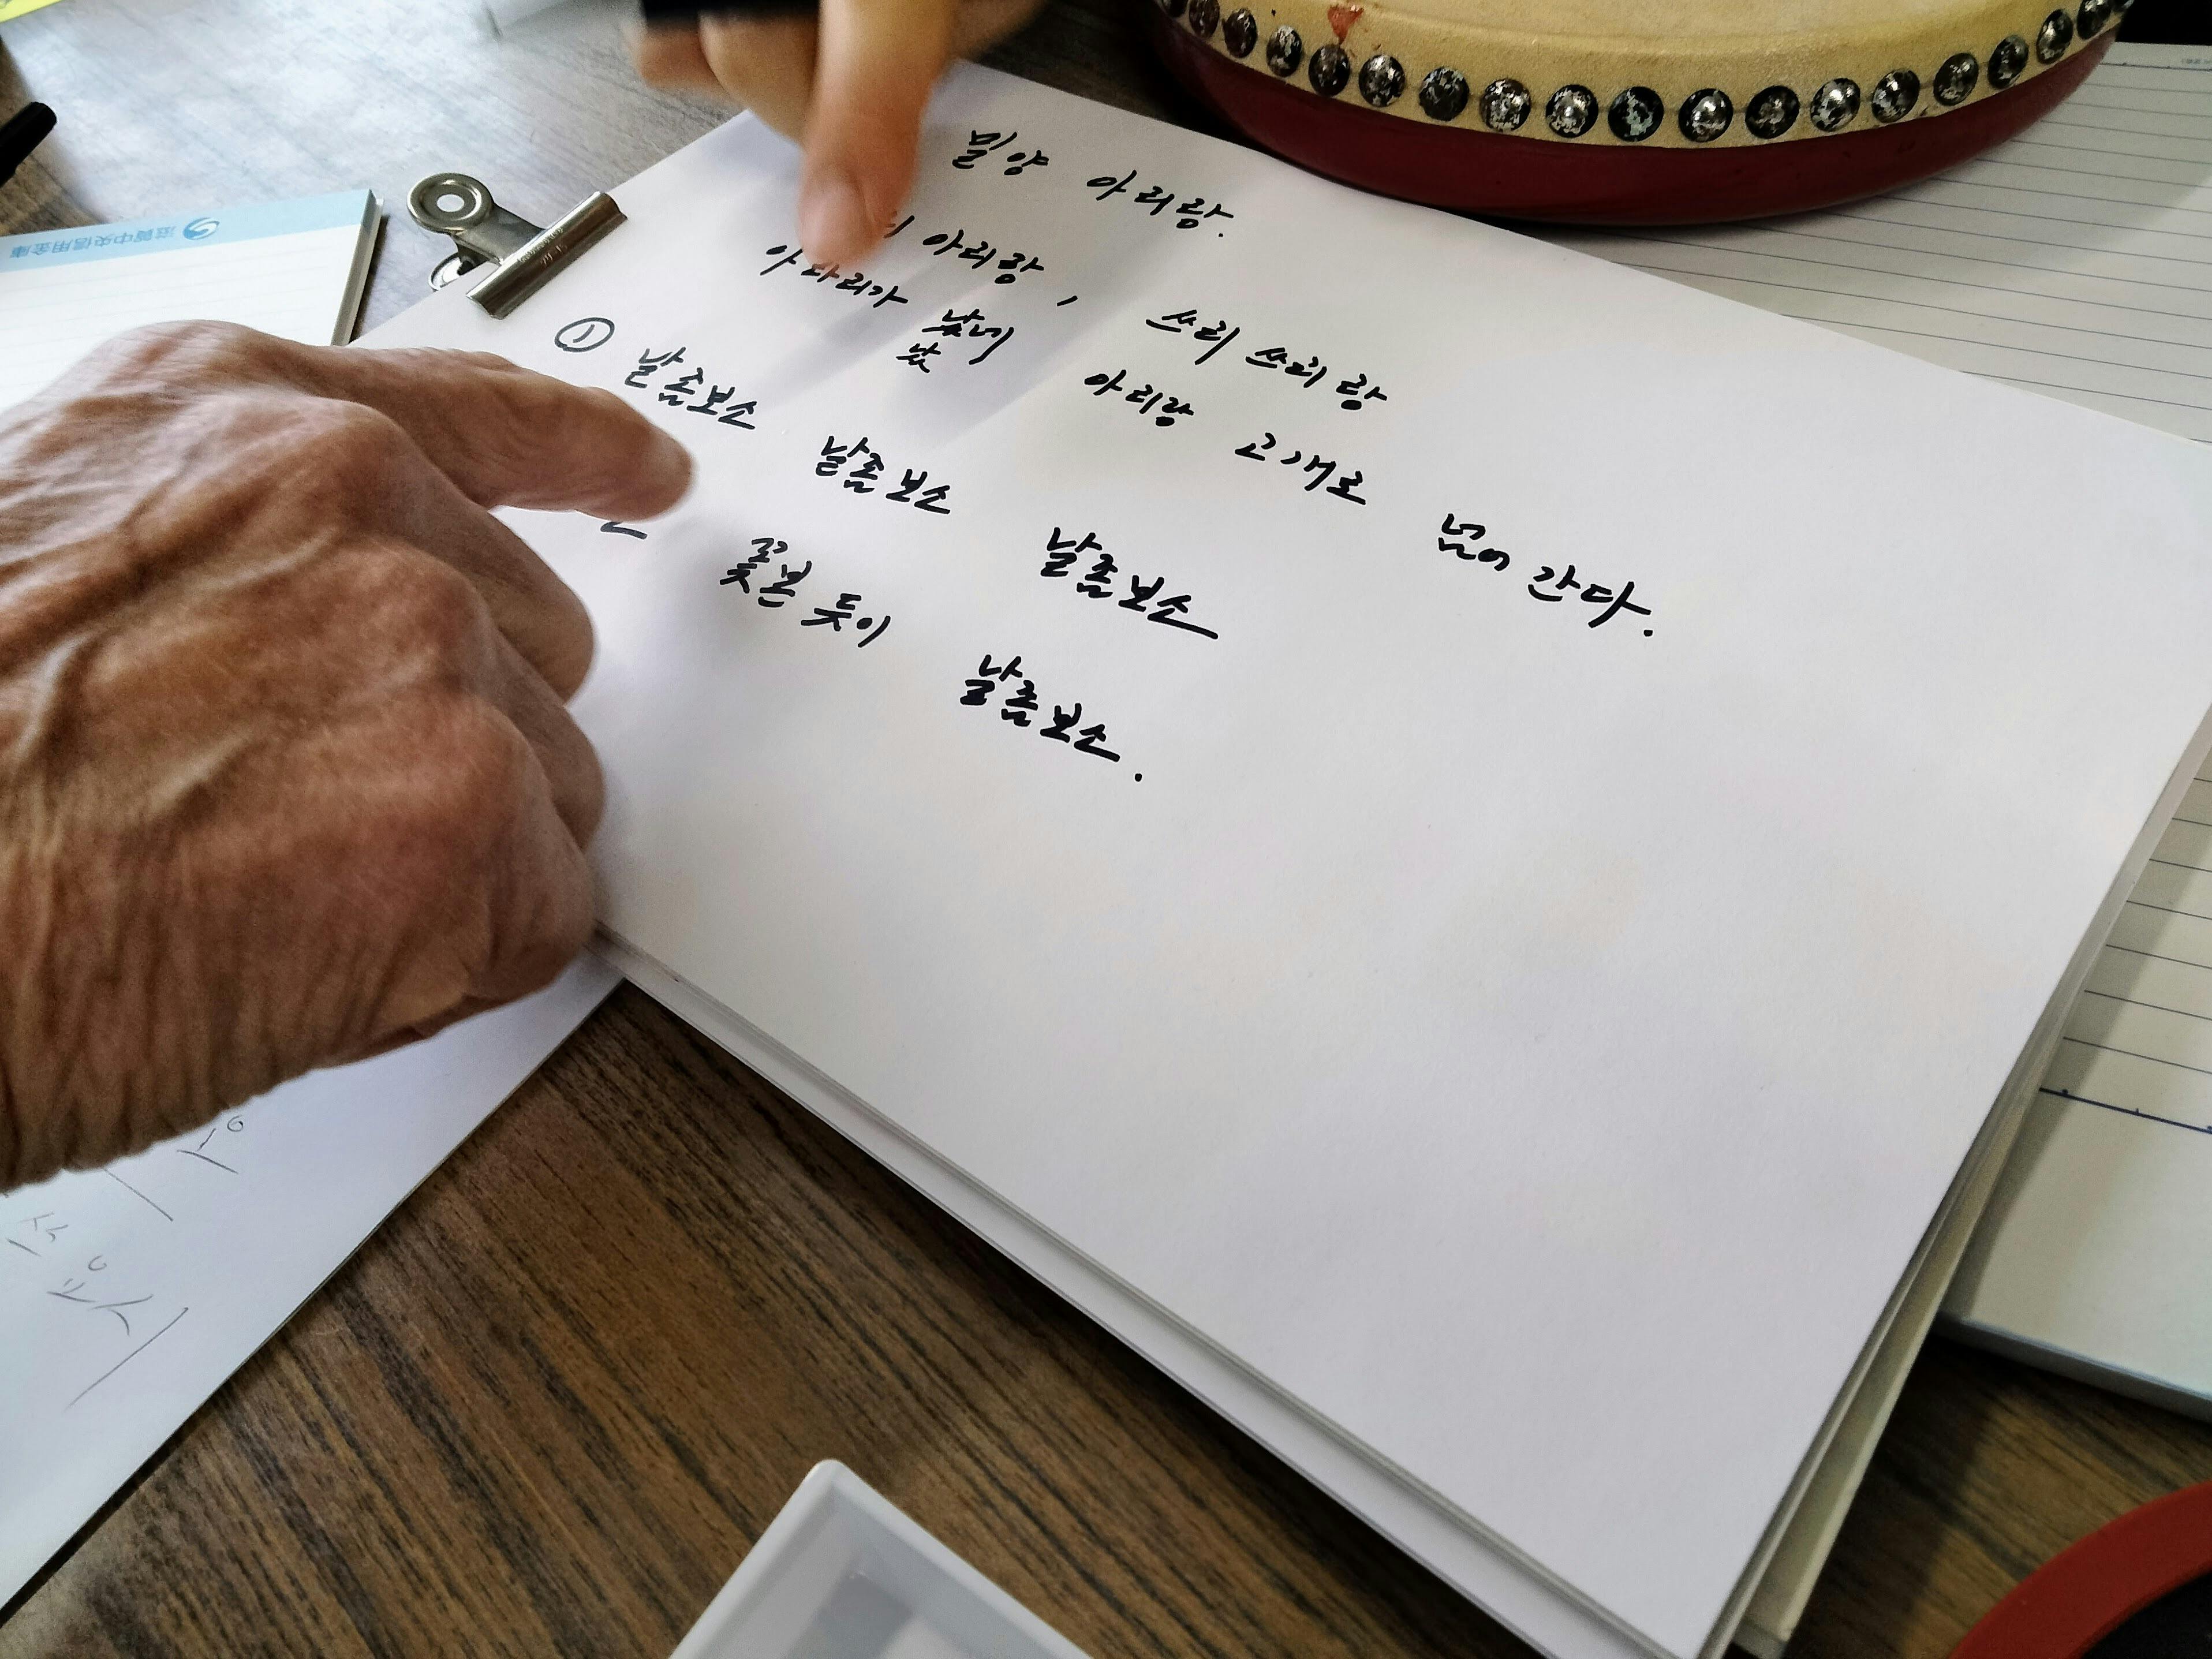 밀양 아리랑.
아리랑, 쓰리 쓰리랑
아라리가 났네 아리랑 고개로 넘어 간다.
났
① 날좀보소 날좀보소 날좀보소
꽃본 듯이 날좀보소.
滋賀中央信用金庫